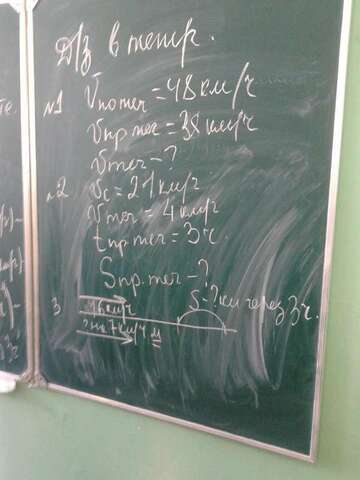 Д/З в тетр.
№1 Vпо теч = 48 км/ч
Vпр теч = 38 км/ч
Vтеч - ?
№2 Vс = 21 км/ч
Vтеч = 4 км/ч
tпр. теч = 3 ч.
Sпр. теч - ?
3 км/ч S - ? км через 3 ч.
? на 7 км/ч м